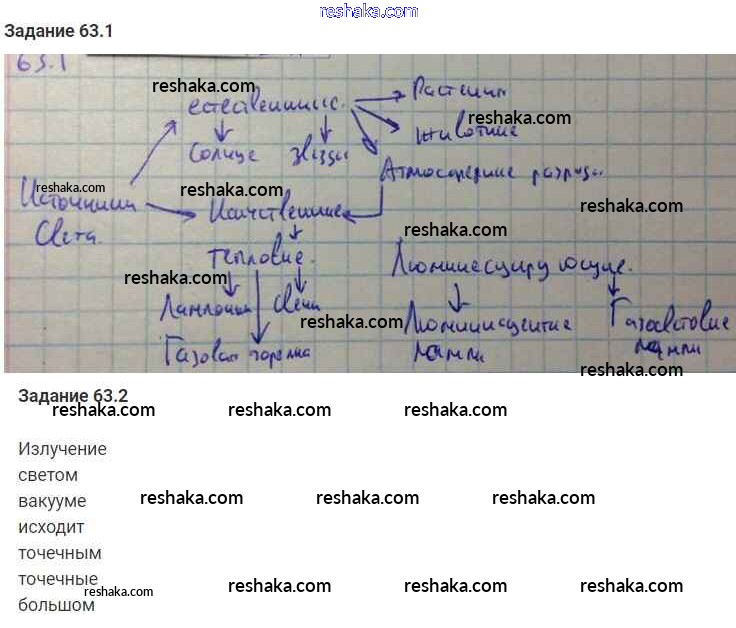 reshaka.com
Задание 63.1
63.1
reshaka.com
естественные. Растения
reshaka.com
Животные
Солнце звёзды Атмосферные разряды.
reshaka.com reshaka.com
Источники Искусственные
reshaka.com
Света.
reshaka.com
тепловые. Люминесцирующие.
reshaka.com
Лампочки Свечи
reshaka.com
Люминисцентные Газосветовые
Газовая горелка лампы лампы
reshaka.com
Задание 63.2
reshaka.com reshaka.com reshaka.com
Излучение
светом
вакууме
reshaka.com reshaka.com reshaka.com
исходит
точечным
точечные
reshaka.com reshaka.com reshaka.com reshaka.com
большом